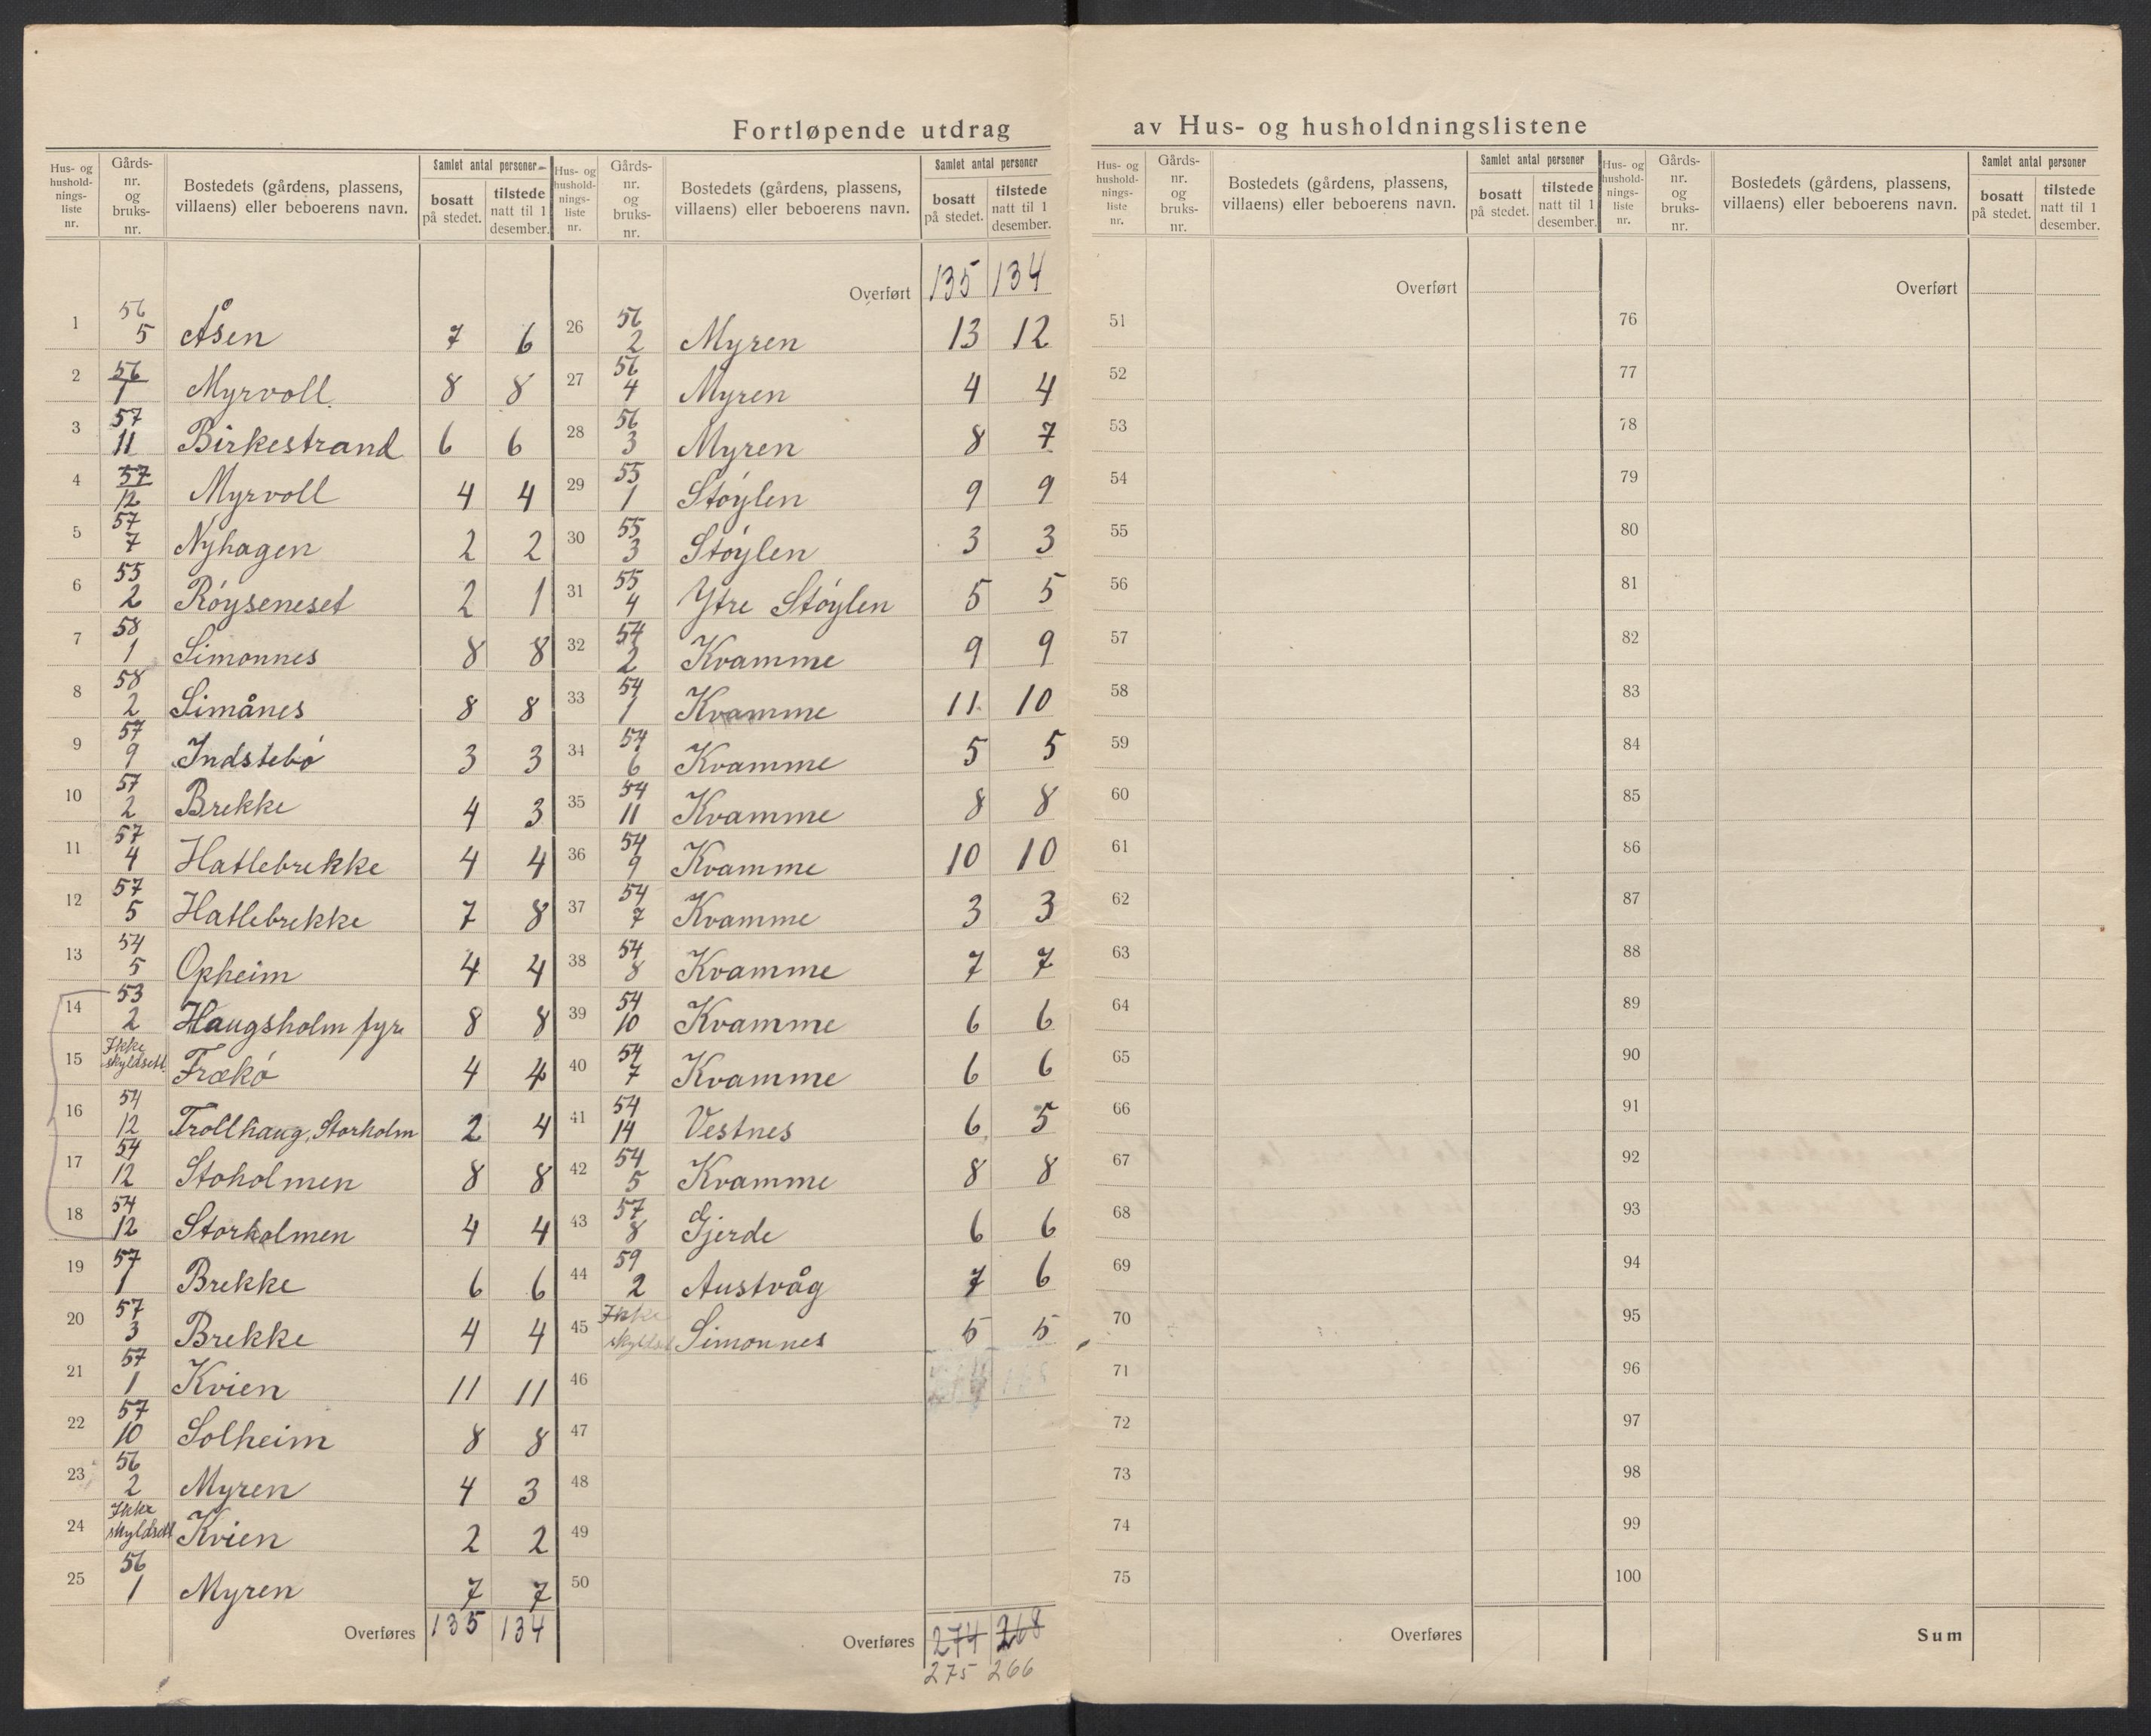 Fortløpende utdrag av Hus- og husholdningslistene
Hus- og husholdnings-liste nr. | Gårds-nr. og bruks-nr. | Bostedets (gårdens, plassens, villaens) eller beboerens navn. | Samlet antal personer | bosatt på stedet. | tilstede natt til 1 desember.
1 56 5 Åsen 7 6
2 56 1 Myrvoll 8 8
3 57 11 Birkestrand 6 6
4 57 12 Myrvoll 4 4
5 57 7 Nyhagen 2 2
6 55 2 Róyseneset 2 1
7 58 1 Simonnes 8 8
8 58 2 Simånes 8 8
9 57 9 Indstebó 3 3
10 57 2 Brekke 4 3
11 57 4 Hatlebrekke 4 4
12 57 5 Hatlebrekke 7 8
13 54 5 Opheim 4 4
14 53 2 Haugsholm fyr 8 8
15 Ikke skyldsett Frækó 4 4
16 54 12 Trollhaug, Storholm 2 4
17 54 12 Stoholmen 8 8
18 54 12 Storholmen 4 4
19 57 1 Brekke 6 6
20 57 3 Brekke 4 4
21 57 1 Kvien 11 11
22 57 10 Solheim 8 8
23 56 2 Myren 4 3
24 Ikke skyldsett Kvien 2 2
25 56 1 Myren 7 7
Overføres 135 134
Hus- og husholdnings-liste nr. | Gårds-nr. og bruks-nr. | Bostedets (gårdens, plassens, villaens) eller beboerens navn. | Samlet antal personer | bosatt på stedet. | tilstede natt til 1 desember.
Overført 135 134
26 56 2 Myren 13 12
27 56 4 Myren 4 4
28 56 3 Myren 8 7
29 55 1 Stóylen 9 9
30 55 3 Stóylen 3 3
31 55 4 Ytre Stóylen 5 5
32 54 2 Kvamme 9 9
33 54 1 Kvamme 11 10
34 54 6 Kvamme 5 5
35 54 11 Kvamme 8 8
36 54 9 Kvamme 10 10
37 54 7 Kvamme 3 3
38 54 8 Kvamme 7 7
39 54 10 Kvamme 6 6
40 54 7 Kvamme 6 6
41 54 14 Vestnes 6 5
42 54 5 Kvamme 8 8
43 57 8 Gjerde 6 6
44 59 2 Austvåg 7 6
45 Ikke skyldsett Simonnes 5 5
46
47
48
49
50
Overføres 274 268
275 266
Hus- og husholdnings-liste nr. | Gårds-nr. og bruks-nr. | Bostedets (gårdens, plassens, villaens) eller beboerens navn. | Samlet antal personer | bosatt på stedet. | tilstede natt til 1 desember.
Overført
51
52
53
54
55
56
57
58
59
60
61
62
63
64
65
66
67
68
69
70
71
72
73
74
75
Overføres
Hus- og husholdnings-liste nr. | Gårds-nr. og bruks-nr. | Bostedets (gårdens, plassens, villaens) eller beboerens navn. | Samlet antal personer | bosatt på stedet. | tilstede natt til 1 desember.
Overført
76
77
78
79
80
81
82
83
84
85
86
87
88
89
90
91
92
93
94
95
96
97
98
99
100
Sum